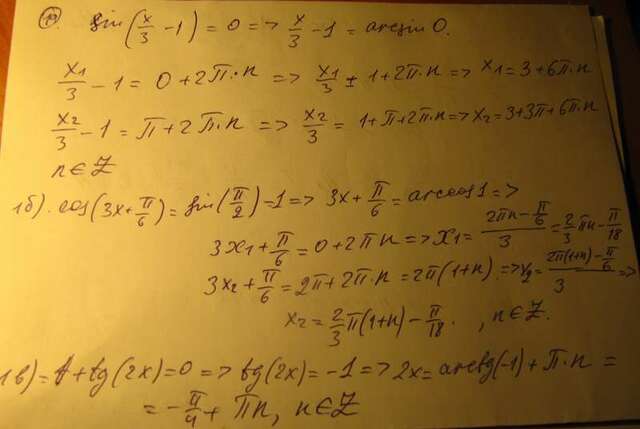 1a). sin(x/3 - 1) = 0 => x/3 - 1 = arcsin 0.
x₁/3 - 1 = 0 + 2π·n => x₁/3 = 1 + 2π·n => x₁ = 3 + 6π·n
x₂/3 - 1 = π + 2π·n => x₂/3 = 1 + π + 2π·n => x₂ = 3 + 3π + 6π·n
n ∈ Z
1б). cos(3x + π/6) = sin(π/2) = 1 => 3x + π/6 = arccos 1 =>
3x₁ + π/6 = 0 + 2πn => x₁ = (2πn - π/6)/3 = 2/3 πn - π/18
3x₂ + π/6 = 2π + 2π·n = 2π(1+n). => x₂ = (2π(1+n) - π/6)/3 =>
x₂ = 2/3 π(1+n) - π/18. , n ∈ Z.
1в) = 1 + tg(2x) = 0 => tg(2x) = -1 => 2x = arctg(-1) + π·n =
= -π/4 + πn, n ∈ Z